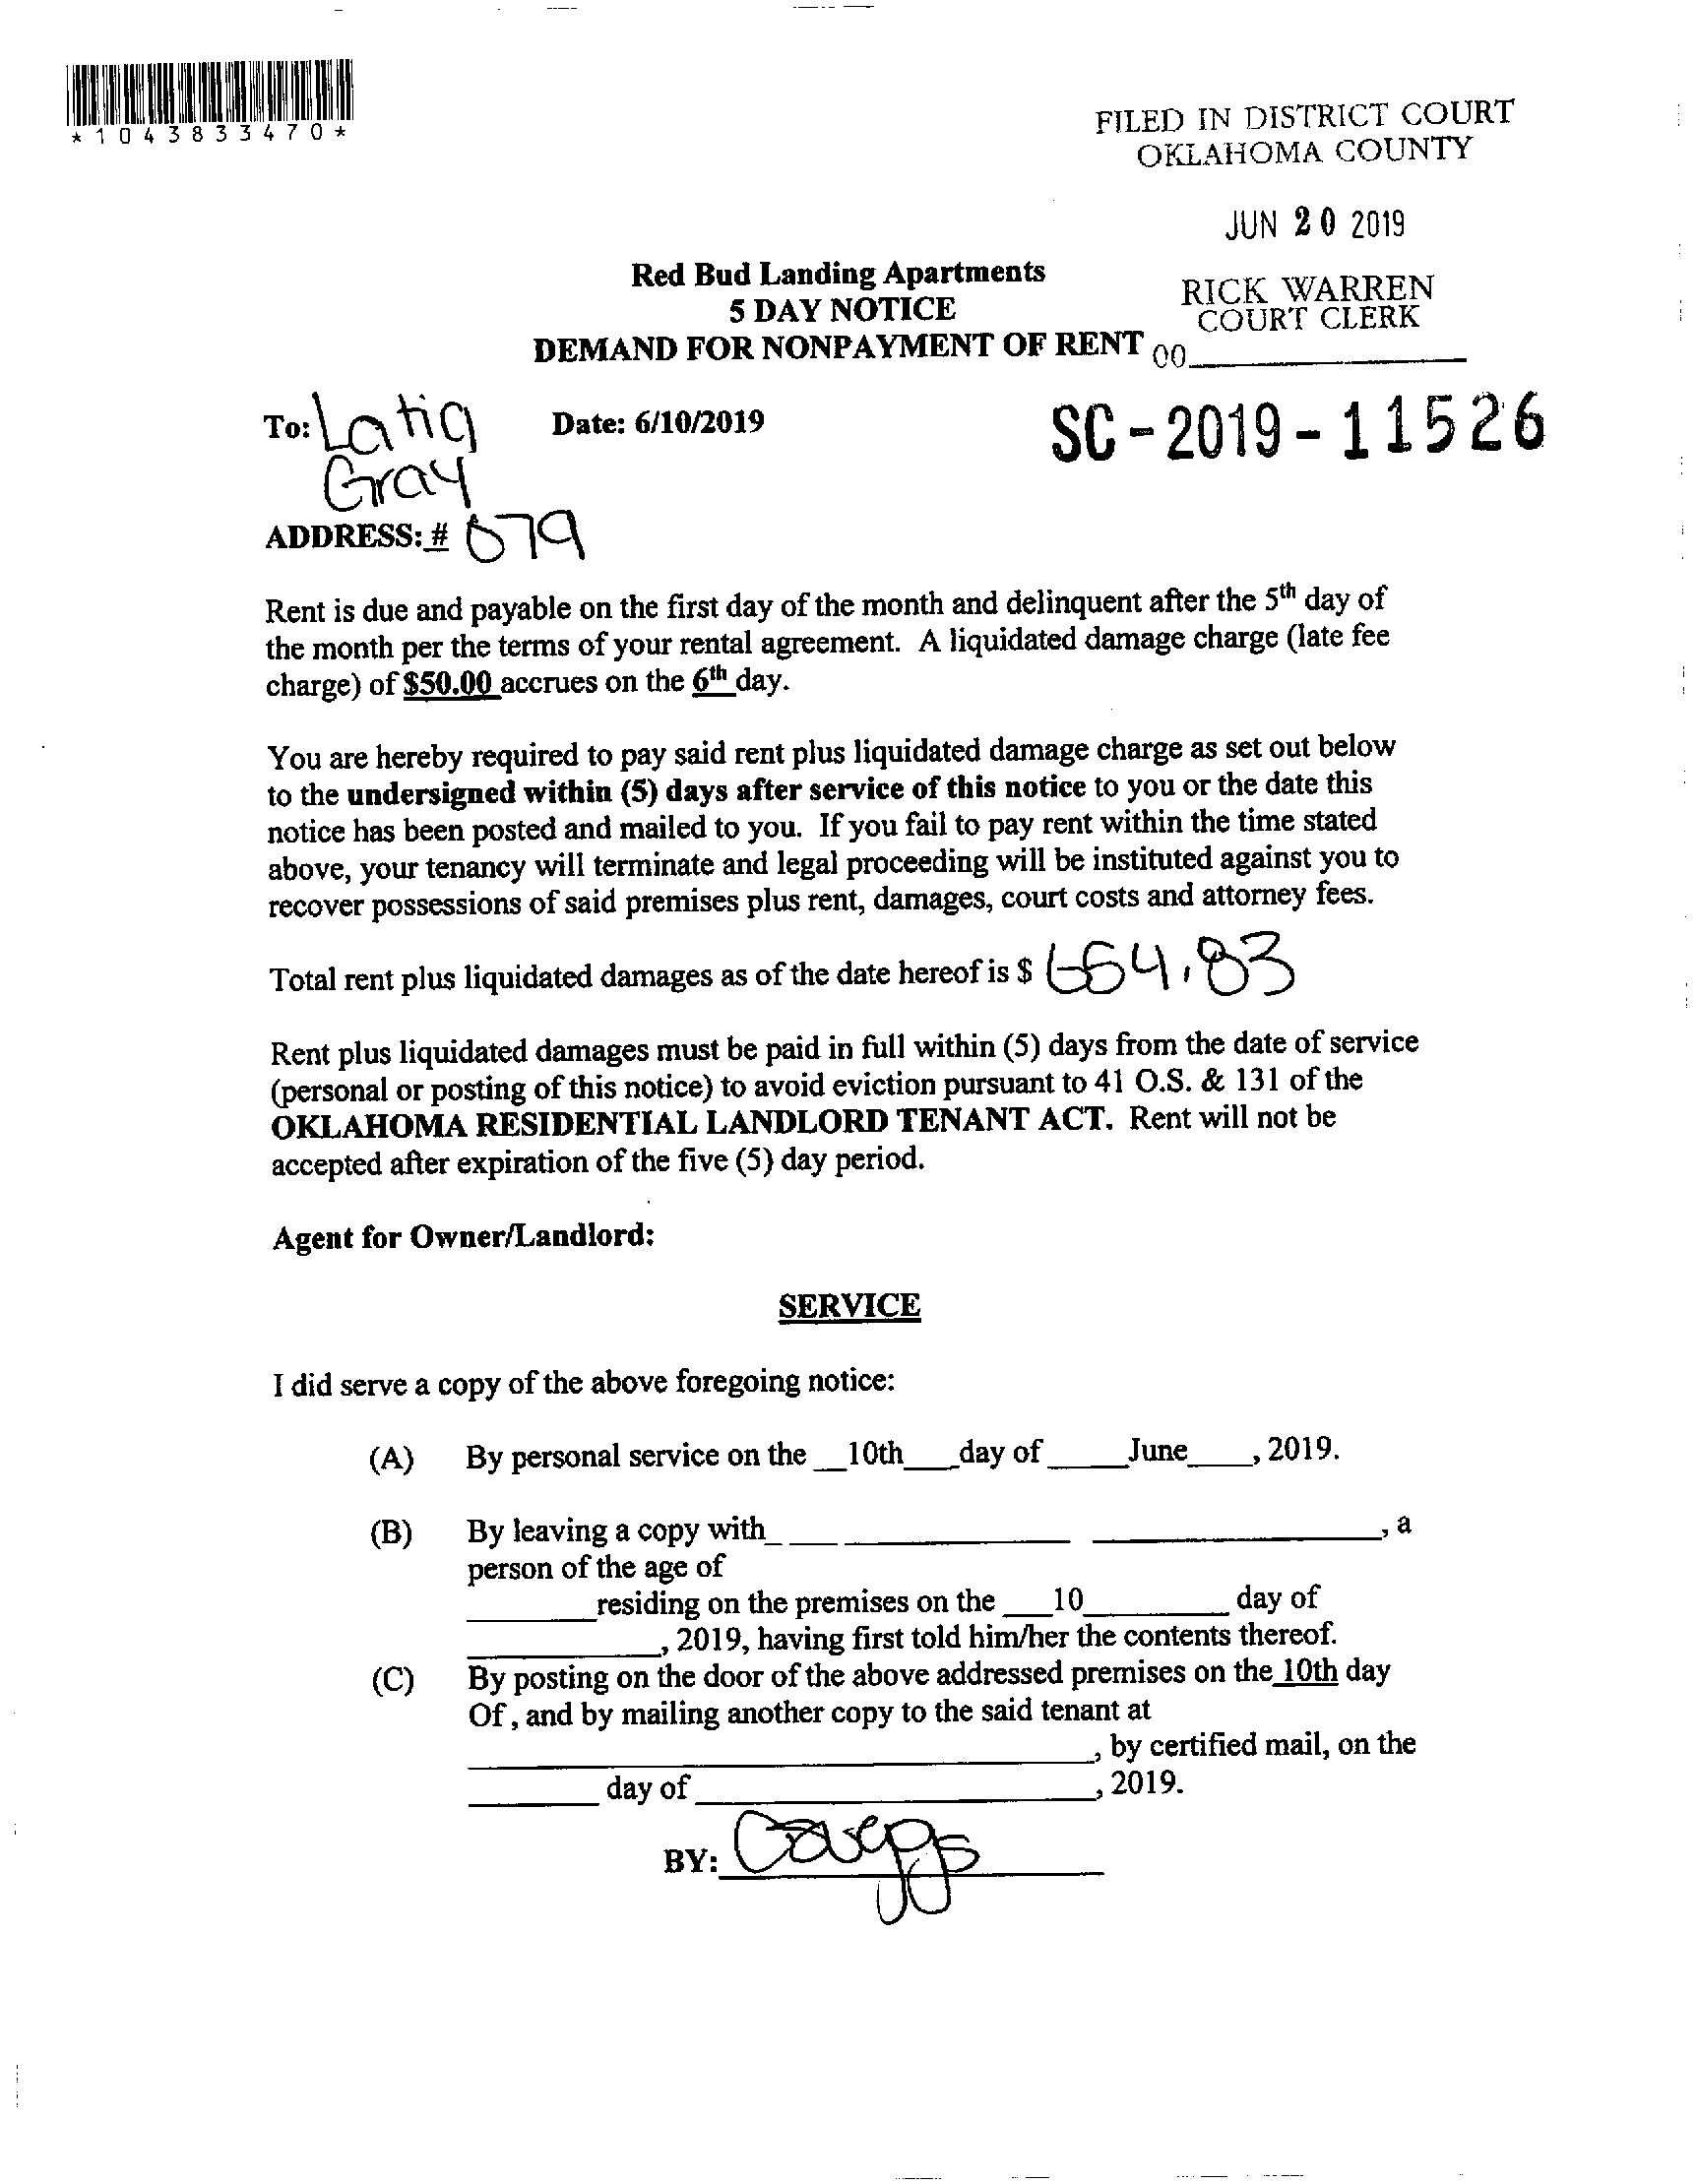 *1043833470*
FILED IN DISTRICT COURT
OKLAHOMA COUNTY
JUN 20 2019
Red Bud Landing Apartments
5 DAY NOTICE
DEMAND FOR NONPAYMENT OF RENT
RICK WARREN
COURT CLERK
00
To: Latia Date: 6/10/2019
Gray
SC-2019-11526
ADDRESS: # 679
Rent is due and payable on the first day of the month and delinquent after the 5th day of
the month per the terms of your rental agreement. A liquidated damage charge (late fee
charge) of $50.00 accrues on the 6th day.
You are hereby required to pay said rent plus liquidated damage charge as set out below
to the undersigned within (5) days after service of this notice to you or the date this
notice has been posted and mailed to you. If you fail to pay rent within the time stated
above, your tenancy will terminate and legal proceeding will be instituted against you to
recover possessions of said premises plus rent, damages, court costs and attorney fees.
Total rent plus liquidated damages as of the date hereof is $ 654.83
Rent plus liquidated damages must be paid in full within (5) days from the date of service
(personal or posting of this notice) to avoid eviction pursuant to 41 O.S. & 131 of the
OKLAHOMA RESIDENTIAL LANDLORD TENANT ACT. Rent will not be
accepted after expiration of the five (5) day period.
Agent for Owner/Landlord:
SERVICE
I did serve a copy of the above foregoing notice:
(A) By personal service on the __10th___day of _____June____, 2019.
(B) By leaving a copy with_ __ ______________ __________________, a
person of the age of
________residing on the premises on the ___10_________ day of
____________, 2019, having first told him/her the contents thereof.
(C) By posting on the door of the above addressed premises on the 10th day
Of , and by mailing another copy to the said tenant at
_______________________________________, by certified mail, on the
________ day of _________________________, 2019.
BY: